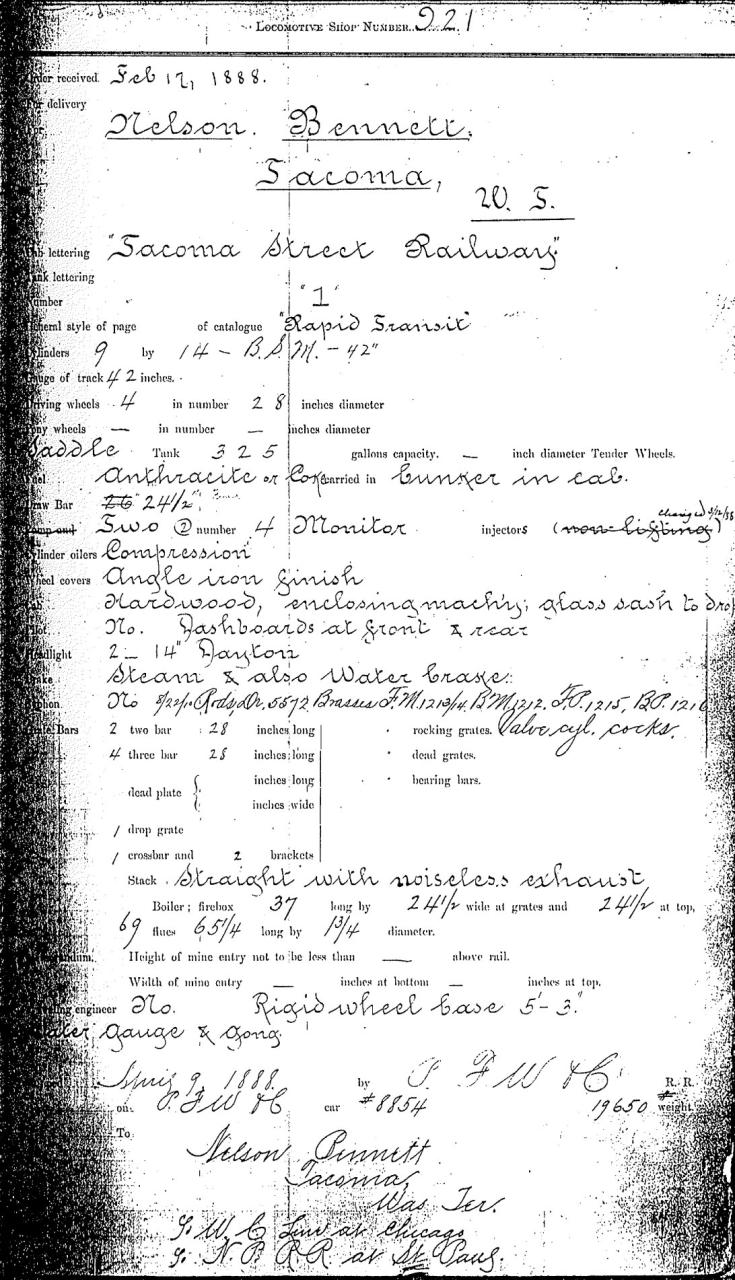 Locomotive Shop Number 921
Order received. Feb 17, 1888.
For delivery
For Nelson. Bennett,
Tacoma,
W. T.
Cab lettering "Tacoma Street Railway"
Tank lettering
Number "1"
General style of page of catalogue "Rapid Transit"
Cylinders 9 by 14 - B. S. M. - 42"
Gauge of track 42 inches.
Driving wheels 4 in number 28 inches diameter
Pony wheels — in number — inches diameter
Saddle Tank 325 gallons capacity. — inch diameter Tender Wheels.
Fuel Anthracite or Coke carried in bunker in cab.
Draw Bar 26" 24½"
Pump and Two @ number 4 Monitor injectors (non-lifting) changed 3/12/88
Cylinder oilers Compression
Wheel covers Angle iron finish
Cab Hardwood, enclosing mach'y; glass sash to drop
Pilot No. Dashboards at front & rear
Headlight 2 - 14" Dayton
Brake Steam & also Water brake.
Syphon. No Rods, Dr. 5572 Brasses F.M. 1213/14. B.M. 1212. F.P. 1215, B.P. 1216
Grate Bars 2 two bar 28 inches long rocking grates. Valve cyl. cocks.
4 three bar 28 inches long dead grates.
dead plate { inches long bearing bars.
inches wide
1 drop grate
1 crossbar and 2 brackets
Stack Straight with noiseless exhaust
Boiler; firebox 37 long by 24½ wide at grates and 24½ at top,
69 flues 65¼ long by 1¾ diameter.
Memorandum. Height of mine entry not to be less than — above rail.
Width of mine entry — inches at bottom — inches at top.
Traveling engineer No. Rigid wheel base 5'-3"
Water gauge & gong
April 9, 1888. by P. F W & C R. R.
on P. F W & C car #8854 19650 weight.
To
Nelson Bennett
Tacoma,
Was Ter.
at Chicago
N P R R at St Paul.